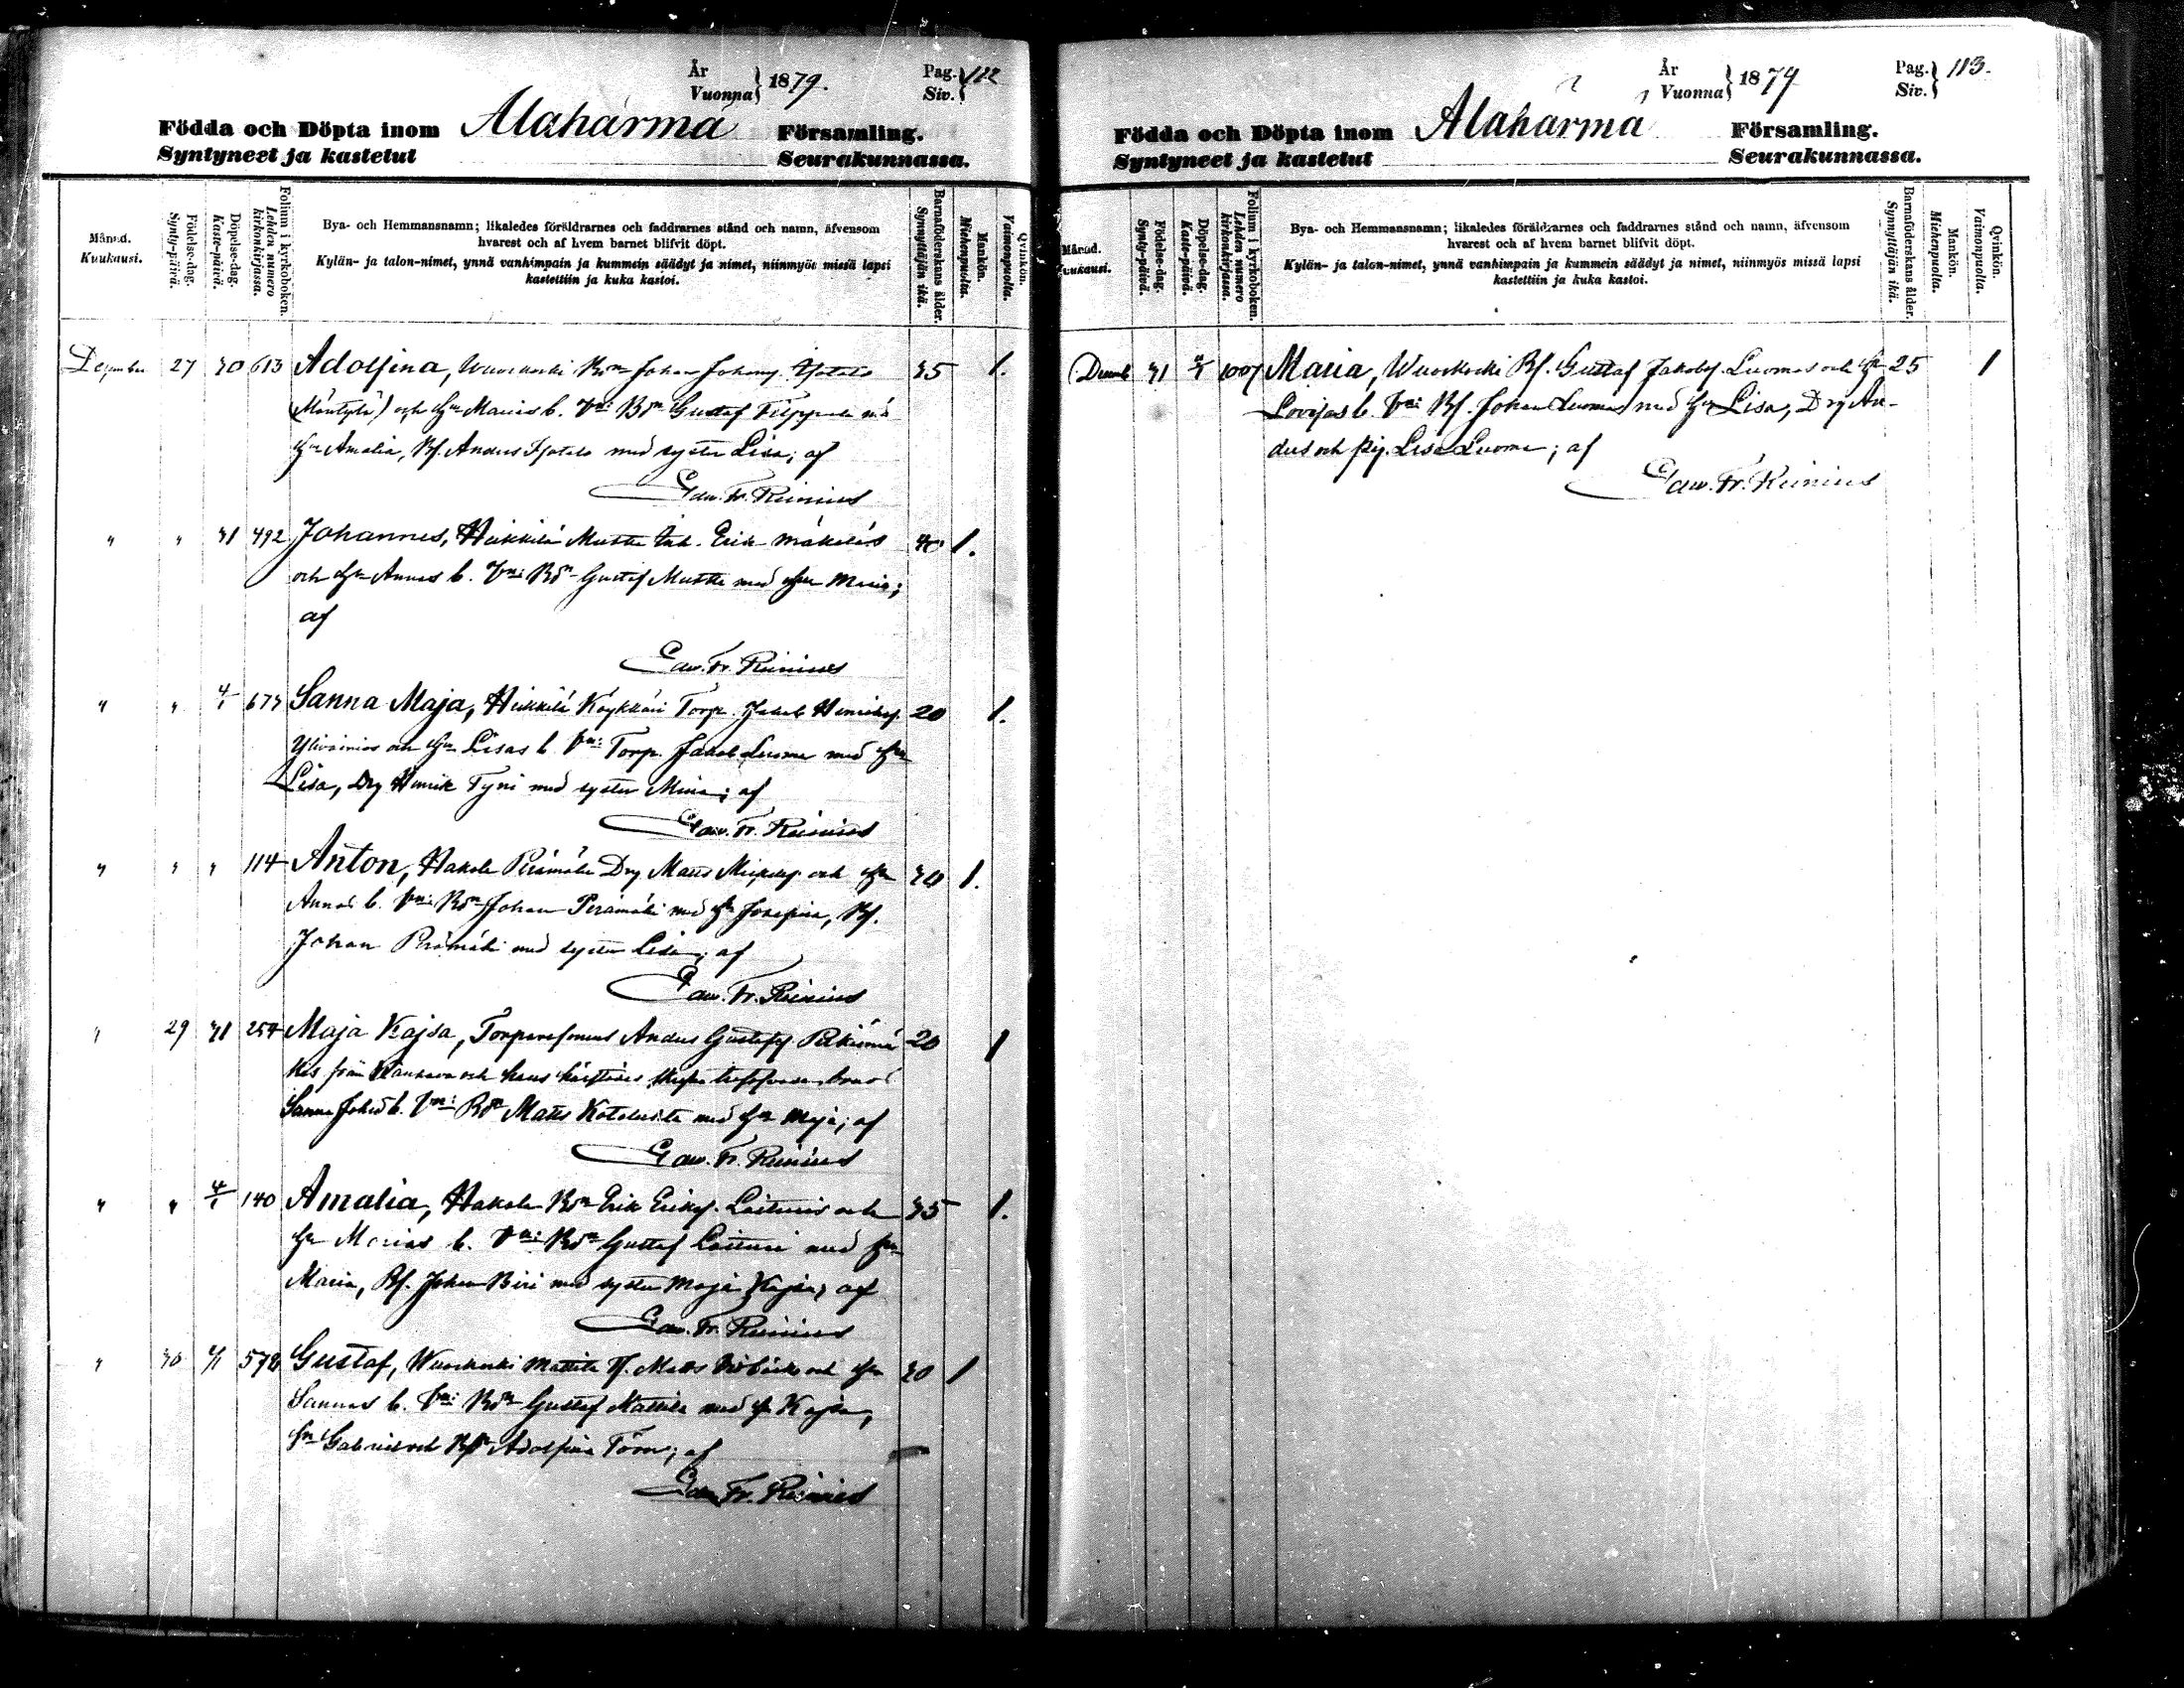 År
Vuonna } 1879.
Pag.
Siv. } 112
Födda och Döpta inom Alahärmä Församling.
Syntyneet ja kastetut Seurakunnassa.
Månad.
Kuukausi.
Födelse-dag.
Synty-päivä.
Döpelse-dag.
Kaste-päivä.
Folium i kyrkoboken.
Lehden numero kirkonkirjassa.
Bya- och Hemmansnamn; likaledes föräldrarnes och faddrarnes stånd och namn, äfvensom
hvarest och af hvem barnet blifvit döpt.
Kylän- ja talon-nimet, ynnä vanhimpain ja kummein säädyt ja nimet, niinmyös missä lapsi
kastettiin ja kuka kastoi.
Barnaföderskans ålder.
Synnyttäjän ikä.
Mankön.
Miehenpuolta.
Qvinkön.
Vaimonpuolta.
December 27 30 613 Adolfina, Wuoskoski Bdn Johan Johans. 35 1.
(Mäntylä) och Hu Marias b. Vni: Bdn Gustaf Filppula
Hu Amalia, Bs. Anders med syster Lisa; af
Edw. Fr. Reinius
" " 31 492 Johannes, Heikkilä Mustta Inh. Erik Mäkeläs 40 1.
och Hu Annas b. Vni: Bdn Gustaf Mustta med Hu Maria;
af
Edw. Fr. Reinius
" " 4/1 673 Sanna Maja, Heikkilä Köykkäri Torp. Jakob Henriks. 20 1.
Ylivainios och Hu Lisas b. Vni: Torp. Jakob Luoma med Hu
Lisa, Drg Henrik Tyni med syster Mina; af
Edw. Fr. Reinius
" " " 114 Anton, Hakola Perämäki Drg Matts och Hu 30 1.
Annas b. Vni: Bdn Johan Perämäki med Hu Josefina, Bs.
Johan Perämäki med syster Lisa; af
Edw. Fr. Reinius
" 29 31 254 Maja Kajsa, Anders Gustafs. 20 1
från Kauhava och hans
Sanna b. Vni: Bdn Matts med Hu Maja; af
Edw. Fr. Reinius
" " 4/1 140 Amalia, Hakola Bdn Erik Eriks. Loituris och 35 1.
Hu Marias b. Vni: Bdn Gustaf Loituri med Hu
Maria, Bs. Johan Biri med syster Maja Kajsa; af
Edw. Fr. Reinius
" 30 4/1 572 Gustaf, Wuoskoski Mattila Matts och Hu 30 1
Sannas b. Vni: Bdn Gustaf Mattila med Hu Kajsa,
Gabriel och Adolfina Törn; af
Edw. Fr. Reinius
År
Vuonna } 1879
Pag.
Siv. } 113.
Födda och Döpta inom Alahärmä Församling.
Syntyneet ja kastetut Seurakunnassa.
Månad.
Kuukausi.
Födelse-dag.
Synty-päivä.
Döpelse-dag.
Kaste-päivä.
Folium i kyrkoboken.
Lehden numero kirkonkirjassa.
Bya- och Hemmansnamn; likaledes föräldrarnes och faddrarnes stånd och namn, äfvensom
hvarest och af hvem barnet blifvit döpt.
Kylän- ja talon-nimet, ynnä vanhimpain ja kummein säädyt ja nimet, niinmyös missä lapsi
kastettiin ja kuka kastoi.
Barnaföderskans ålder.
Synnyttäjän ikä.
Mankön.
Miehenpuolta.
Qvinkön.
Vaimonpuolta.
Decemb 31 1007 Maria, Wuoskoski Bs. Gustaf Jakobs. Luomas och Hu 25 1
Lovisas b. Vni: Bs. Johan Luoma med Hu Lisa, Drg An-
ders och pig. Lisa Luoma; af
Edw. Fr. Reinius